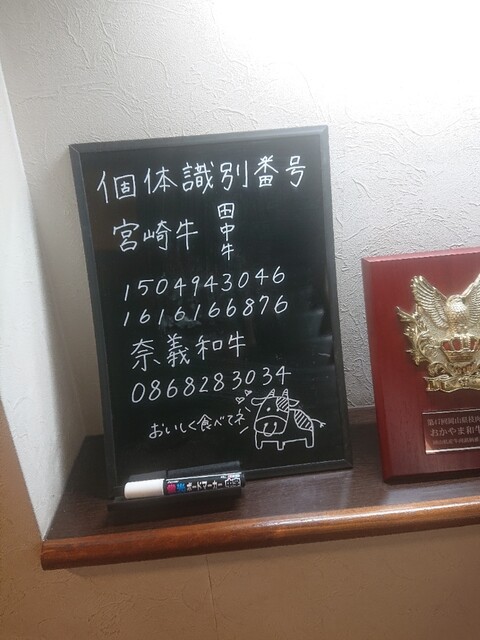 個体識別番号
宮崎牛 田中牛
1504943046
1616166876
奈義和牛
0868283034
おいしく食べてネ
ボードマーカー
おかやま和牛